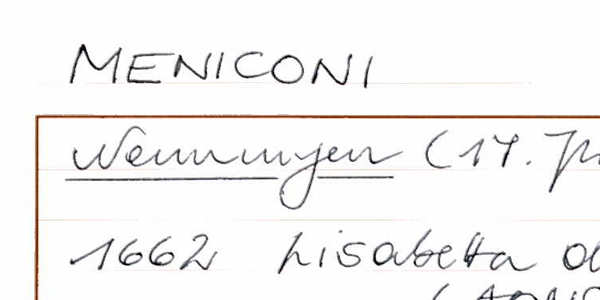 MENICONI
Nennungen (17.
1662 Lisabetta